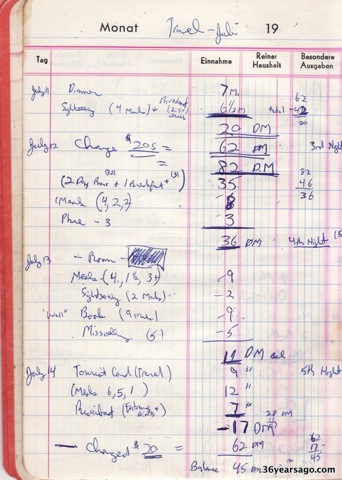 Monat Travel - July 19
Tag Einnahme Reiner Haushalt Besondere Ausgaben
July 11 Dinner 7 M
Sightseeing (4 Marks) + Breakfast 6½ M 42
20 DM 20
July 12 Change $20 = 62 DM 3rd Night
82 DM 82
(2 Day + 1 Breakfast) 35 46
Meals (4, 2, 2) - 8 36
Phone - 3 - 3
36 DM 4th Night
July 13 - Room -
Meals (4, 1½, 3) -9
Sightseeing (2 Marks) -2
"Wall" Book (9 Marks) -9
Miscellany (5) -5
11 DM
July 14 Tourist Card (Travel) 9 " 5th Night
(Meals 6, 5, 1) 12 "
7 " 28 DM
-17 DM
— Changed $20 = 62 DM 62
17
45
Balance 45 DM
36yearsago.com